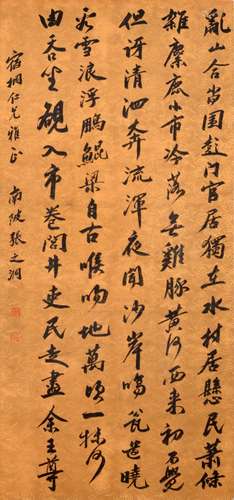 亂山合沓圍彭門官居獨在水村居懸民蕭條
雜麋鹿小市冷落無雞豚黃河西來初不覺
但訝清泗奔流渾夜聞沙岸鳴甕盎曉
看雪浪浮鵬鯤梁自古喉吻地萬頃一抹何
由吞坐觀入市卷閭井吏民走盡余王尊
桐仁兄雅正 南陂張之洞